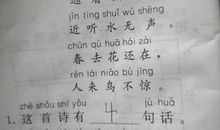 jìn tīng shuǐ wú shēng
近听水无声。
chūn qù huā hái zài
春去花还在，
rén lái niǎo bù jīng
人来鸟不惊。
zhè shǒu shī yǒu jù huà
1. 这首诗有 句话。